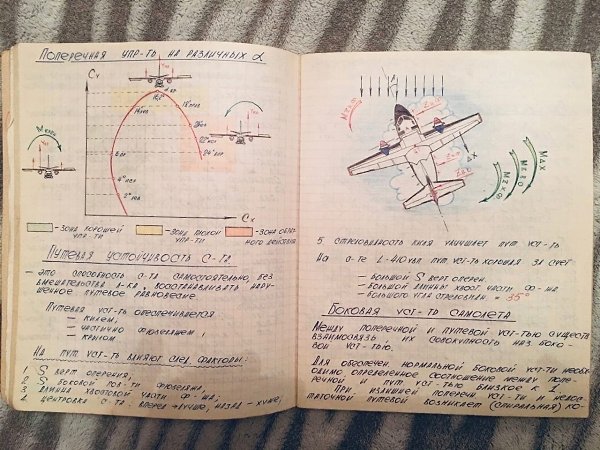 ПОПЕРЕЧНАЯ УПР-ТЬ НА РАЗЛИЧНЫХ α
Cy
α кр
18° ПРЯ
22° ПСП
24° ПСР
6 ПР
4° ПСП
2° ПСП
Cx
- ЗОНА ХОРОШЕЙ УПР-ТИ
- ЗОНА ПЛОХОЙ УПР-ТИ
- ЗОНА ОБРАТНОГО ДЕЙСТВИЯ
ПУТЕВАЯ УСТОЙЧИВОСТЬ С-ТА
- ЭТО СПОСОБНОСТЬ С-ТА САМОСТОЯТЕЛЬНО, БЕЗ
ВМЕШАТЕЛЬСТВА Л-КА, ВОССТАНАВЛИВАТЬ НАРУ-
ШЕННОЕ ПУТЕВОЕ РАВНОВЕСИЕ.
ПУТЕВАЯ УСТ-ТЬ ОБЕСПЕЧИВАЕТСЯ
- КИЛЕМ,
- ЧАСТИЧНО ФЮЗЕЛЯЖЕМ,
- КРЫЛОМ
НА ПУТ. УСТ-ТЬ ВЛИЯЮТ СЛЕД. ФАКТОРЫ:
1 S ВЕРТ ОПЕРЕНИЯ,
2 S БОКОВОЙ ПОВ-ТИ ФЮЗЕЛЯЖА,
3 ДЛИННА ХВОСТОВОЙ ЧАСТИ ФЮ-ЖА;
4 ЦЕНТРОВКА С-ТА: ВПЕРЕД → ЛУЧШЕ, НАЗАД - ХУЖЕ;
ΔX
5 СТРЕЛОВИДНОСТЬ КИЛЯ УЛУЧШАЕТ ПУТ УСТ-ТЬ
НА С-ТЕ L-410 УВП ПУТ УСТ-ТЬ ХОРОШАЯ ЗА СЧЕТ
- БОЛЬШОЙ S ВЕРТ ОПЕРЕН.
- БОЛЬШОЙ ДЛИННЫ ХВОСТ. ЧАСТИ Ф-ЖА
- БОЛЬШОГО УГЛА СТРЕЛОВИДН. = 35°
БОКОВАЯ УСТ-ТЬ САМОЛЕТА
МЕЖДУ ПОПЕРЕЧНОЙ И ПУТЕВОЙ УСТ-ТЬЮ СУЩЕСТВ
ВЗАИМОСВЯЗЬ, ИХ СОВОКУПНОСТЬ НАЗ БОКО-
ВОЙ УСТ-ТЬЮ.
ДЛЯ ОБЕСПЕЧЕН. НОРМАЛЬНОЙ БОКОВОЙ УСТ-ТИ НЕОБХО-
ДИМО ОПРЕДЕЛЕННОЕ СООТНОШЕНИЕ МЕЖДУ ПОПЕ-
РЕЧНОЙ И ПУТ. УСТ-ТЬЮ БЛИЗКОЕ К 1
ПРИ ИЗЛИШНЕЙ ПОПЕРЕЧН. УСТ-ТИ И НЕДОС-
ТАТОЧНОЙ ПУТЕВОЙ ВОЗНИКАЕТ (СПИРАЛЬНАЯ) КО-